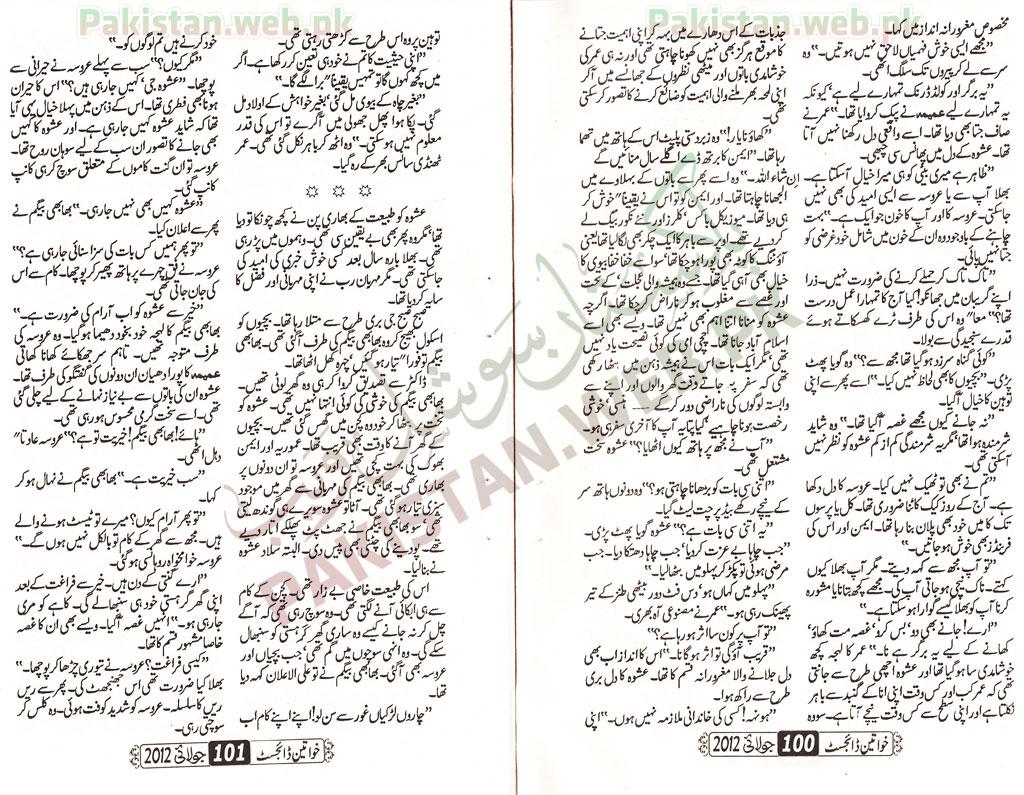 Pakistan.web.pk
مخصوص مغرورانہ انداز میں کہا۔
”مجھے ایسی خوش فہمیاں لاحق نہیں ہوتیں۔“ وہ
سر سے لے کر پیروں تک سلگ اٹھی۔
”یہ برگر اور کولڈ ڈرنک تمہارے لیے ہے‘ کیونکہ
یہ تمہارے لیے عمیمہ نے پیک کروایا تھا۔“ عمر نے
صاف جتا بھی دیا تھا۔ اسے واقعی دل رکھنا نہیں آتا
تھا۔ عشوہ کے دل میں پھانس سی چبھی۔
”ظاہر ہے میری بیٹی کو ہی میرا خیال آسکتا ہے۔
بھلا آپ سے یا عروسہ سے ایسی امید کی بھی نہیں
جاسکتی۔ عروسہ کا اور آپ کا خون جو ایک ہے۔“ بہت
چاہنے کے باوجود وہ ان کے خون میں شامل خود غرضی کو
جتا نہیں پائی۔
”تاک تاک کر حملے کرنے کی ضرورت نہیں۔ ذرا
اپنے گریبان میں جھانکو! کیا آج کا تمہارا عمل درست
تھا؟“ معا“ وہ اس کی طرف ٹرے کھسکاتے ہوئے
قدرے سنجیدگی سے بولا۔
”کوئی گناہ سرزد ہوگیا تھا مجھ سے؟“ وہ گویا پھٹ
پڑی۔ ”بچیوں کا بھی لحاظ نہیں کیا۔“ اسے پھر سے اپنی
توہین کا خیال آگیا۔
”نہ جانے کیوں مجھے غصہ آگیا تھا۔“ وہ شاید
شرمندہ ہوا تھا‘ مگر یہ شرمندگی کم از کم عشوہ کو نظر نہیں
آسکتی تھی۔
”تم نے بھی تو ٹھیک نہیں کیا۔ عروسہ کا دل دکھا
ہے۔ آج کے روز کیک کاٹنا ضروری تھا۔ کل یا پرسوں
تک کا میں خود بھی پلان بنا رہا تھا۔ ایمن اور اس کی
فرینڈز بھی خوش ہوجاتیں۔“
”تو آپ مجھ سے کہہ دیتے۔ مگر آپ بھلا کیوں
کہتے۔ ناک نیچی ہوجاتی آپ کی۔ مجھے کچھ بتانا یا مشورہ
کرنا آپ کو بھلا کیسے گوارا ہوسکتا ہے۔“
”ارے! جانے بھی دو‘ بس کرو‘ غصہ مت کھاؤ‘
کھانے کے لیے یہ برگر ہے نا۔“ عمر کا لہجہ کچھ
خوشامدی سا ہوگیا تھا اور عشوہ اچھی طرح سے جانتی
تھی کہ عمر کب اور کس وقت اپنی انا کے گنبد سے باہر
نکلتا ہے اور اپنی سطح سے کس وقت نیچے آتا ہے۔ سو وہ
جذبات کے اس دھارے میں بہہ کر اپنی اہمیت جتانے
کا موقع ہرگز بھی نہیں کھونا چاہتی تھی اور نہ ہی عمر کی
خوشامدی باتوں اور میٹھی نظروں کے جھانسے میں آکر
اپنی لمحہ بھر ملنے والی اہمیت کو ضائع کرنے کا تصور کرسکتی
تھی۔
”کھاؤ نا یار!“ وہ زبردستی پلیٹ اس کے ہاتھ میں تھما
رہا تھا۔ ”ایمن کا برتھ ڈے اگلے سال منائیں گے
ان شاء اللہ۔“ وہ اسے پھر سے باتوں کے بہلاوے میں
الجھانا چاہتا تھا۔ اور ایمن کو تو اس نے یقینا“ خوش کر
ہی دیا تھا۔ میوزیکل باکس‘ کلرز اور نئے نکور بیگ لے
کر دیے تھے۔ اوپر سے باہر کا ایک چکر بھی لگا لیا تھا یعنی
آؤٹنگ کا کوٹہ بھی پورا ہوچکا تھا‘ سو اسے خفا خفا بیوی کا
خیال بھی آہی گیا تھا۔ جسے وہ ہمیشہ والی عجلت کے تحت
اور غصے سے مغلوب ہوکر ناراض کرچکا تھا۔ اگرچہ
عشوہ کو منانا اتنا اہم بھی نہیں تھا۔ ویسے بھی اسے
اسلام آباد جانا تھا۔ چچی امی کی کوئی نصیحت یاد نہیں
تھی‘ مگر ایک بات اس نے ہمیشہ ذہن میں بٹھا رکھی
تھی کہ سفر پہ جاتے وقت گھر والوں اور اپنے سے
وابستہ لوگوں کی ناراضی دور کرکے ہنسی‘ خوشی
رخصت ہونا چاہیے‘ کیا پتا یہ آپ کا آخری سفر ہی ہو۔
”آپ نے مجھ پر ہاتھ کیوں اٹھایا؟“ عشوہ سخت
مشتعل تھی۔
”اتنی سی بات کو بڑھانا چاہتی ہو؟“ وہ دونوں ہاتھ سر
کے نیچے رکھے بیڈ پر چت لیٹ گیا۔
”یہ اتنی سی بات ہے؟“ عشوہ گویا پھٹ پڑی۔
”جب چاہا بے عزت کردیا‘ جب چاہا دھتکار دیا۔ جب
مرضی ہوئی تو پکڑ کر پہلو میں بٹھالیا۔“
”پہلو میں کہاں ہو‘ دس فٹ دور بیٹھی طنز کے تیر
پھینک رہی ہو۔“ عمر نے مصنوعی آہ بھری۔
”تو آپ پر کون سا اثر ہو رہا ہے؟“
”قریب آؤ گی تو اثر ہوگا نا۔“ اس کا انداز اب بھی
دل جلانے والا مغرورانہ قسم کا تھا۔ عشوہ کا دل بری
طرح سے راکھ ہوا۔
”ہونہہ! کسی کی خاندانی ملازمہ نہیں ہوں۔“ اپنی
خواتین ڈائجسٹ 100 جولائی 2012
Pakistan.web.pk
توہین پر وہ اس طرح سے کڑھتی رہتی تھی۔
”اپنی حیثیت کا تم نے خود ہی تعین کر رکھا ہے۔ اگر
میں کچھ کہوں گا تو تمہیں یقینا“ برا لگے گا۔“
”بغیر چاہ کے بیوی مل گئی‘ بغیر خواہش کے اولاد مل
گئی۔ پکا ہوا پھل جھولی میں آگرے تو اس کی قدر
معلوم نہیں ہوسکتی۔“ وہ اٹھ کر باہر نکل گئی تھی۔ عمر
ٹھنڈی سانس بھر کے رہ گیا۔
☼ ☼ ☼
عشوہ کو طبیعت کے بھاری پن نے کچھ چونکا تو دیا
تھا‘ مگر وہ پھر بھی بے یقین سی تھی۔ وہموں میں پڑ رہی
تھی۔ بھلا بارہ سال بعد کسی خوش خبری کی امید کی
جاسکتی تھی۔ مگر مہربان رب نے اپنی مہربانی اور فضل کا
سایہ کردیا تھا۔
صبح صبح جی بری طرح سے متلا رہا تھا۔ بچیوں کو
اسکول بھیج کر وہ بھابھی بیگم کی طرف آگئی تھی۔ بھابھی
بیگم تو فورا“ تیار ہوگئیں‘ چہرہ کھل اٹھا تھا۔
ڈاکٹر سے تصدیق کروا کر ہی وہ گھر لوٹی تھیں۔
بھابھی بیگم کی خوشی کی کوئی انتہا نہیں تھی۔ عشوہ کو
تخت پر بٹھا کر خود وہ کچن میں گھس گئی تھیں۔ بچیوں
کے گھر آنے کا وقت بھی قریب تھا۔ عموریہ اور ایمن
بھوک کی بہت کچی تھیں اور عروسہ تو ان دونوں پر
بھاری تھی۔ بھابھی بیگم کی مہربانی سے گھر میں موجود
سبزی تیار ہوگئی تھی۔ آٹا تو عشوہ سویرے ہی گوندھ لیتی
تھی‘ سو بھابھی بیگم نے جھٹ پٹ پھلکے اتار دیے
تھے۔ پودینے کی چٹنی بھی پیس دی۔ البتہ سلاد عشوہ
نے بنالیا۔
اس کی طبیعت خاصی بے زار تھی۔ کچن کے کام
سے ہی ابکائی آنے لگتی تھی۔ وہ سوچ رہی تھی کہ آگے
چل کر نہ جانے کیسے وہ ساری گھر گرہستی کو سنبھال
سکے گی۔ وہ انہی سوچوں میں گم تھی‘ جب بچیاں اور
عروسہ بھی آگئی۔ بھابھی بیگم نے تو علی الاعلان کہہ دیا
تھا۔
”چاروں لڑکیاں غور سے سن لو! اپنے اپنے کام اب
خود کرنے ہیں تم لوگوں کو۔“
”مگر کیوں؟“ سب سے پہلے عروسہ نے حیرانی سے
پوچھا۔ ”عشوہ جی‘ کہیں جا رہی ہیں؟“ اس کا حیران
ہونا بھی فطری تھا۔ اس کے ذہن میں پہلا خیال یہی آیا
تھا کہ شاید عشوہ کہیں جا رہی ہے۔ اور عشوہ کا کہیں
بھی جانے کا تصور ان سب کے لیے سوہان روح تھا۔
عروسہ تو ان گنت کاموں کے متعلق سوچ کر ہی کانپ
کانپ گئی۔
”عشوہ کہیں بھی نہیں جا رہی۔“ بھابھی بیگم نے
پھر سے اعلان کیا۔
”تو پھر ہمیں کس بات کی سزا سنائی جا رہی ہے؟“
عروسہ نے فق چہرے پر ہاتھ پھیر کر پوچھا۔ کام سے اس
کی جان جاتی تھی۔
”خیر سے عشوہ کو اب آرام کی ضرورت ہے۔“
بھابھی بیگم کا لہجہ خود بخود دھیما ہوگیا۔ وہ عروسہ کی
طرف متوجہ تھیں۔ تاہم سر جھکائے کھانا کھاتی
عمیمہ کا پورا دھیان ان دونوں کی گفتگو کی طرف تھا۔
عشوہ ان کی باتوں سے بے نیاز نہانے کے لیے چلی گئی
تھی۔ اسے سخت گرمی محسوس ہو رہی تھی۔
”ہائے! بھابھی بیگم! خیریت تو ہے؟“ عروسہ عادتا“
دہل اٹھی۔
”سب خیریت ہے۔“ بھابھی بیگم نے نہال ہوکر
کہا۔
”تو پھر آرام کیوں؟ میرے تو ٹیسٹ ہونے والے
ہیں۔ مجھ سے گھر کے کام تو بالکل نہیں ہوں گے۔“
عروسہ خوامخواہ روہانسی ہوگئی۔
”ارے گنتی کے دن ہیں۔ خیر سے فراغت کے بعد
اپنی گھر گرہستی خود ہی سنبھالے گی۔ کاہے کو مری
جا رہی ہو۔“ انہیں غصہ آگیا۔ ویسے بھی ان کا غصہ
خاصا مشہور قسم کا تھا۔
”کیسی فراغت؟ عروسہ نے تیوری چڑھا کر پوچھا۔“
بھلا کیا ضرورت تھی اس جھنجھٹ کی۔ پھر سے ریں
ریں کا سلسلہ۔ عروسہ کو شدید کوفت ہوئی۔ وہ کلس کر
سوچتی رہی۔
خواتین ڈائجسٹ 101 جولائی 2012
PAKISTAN.WEB.PK